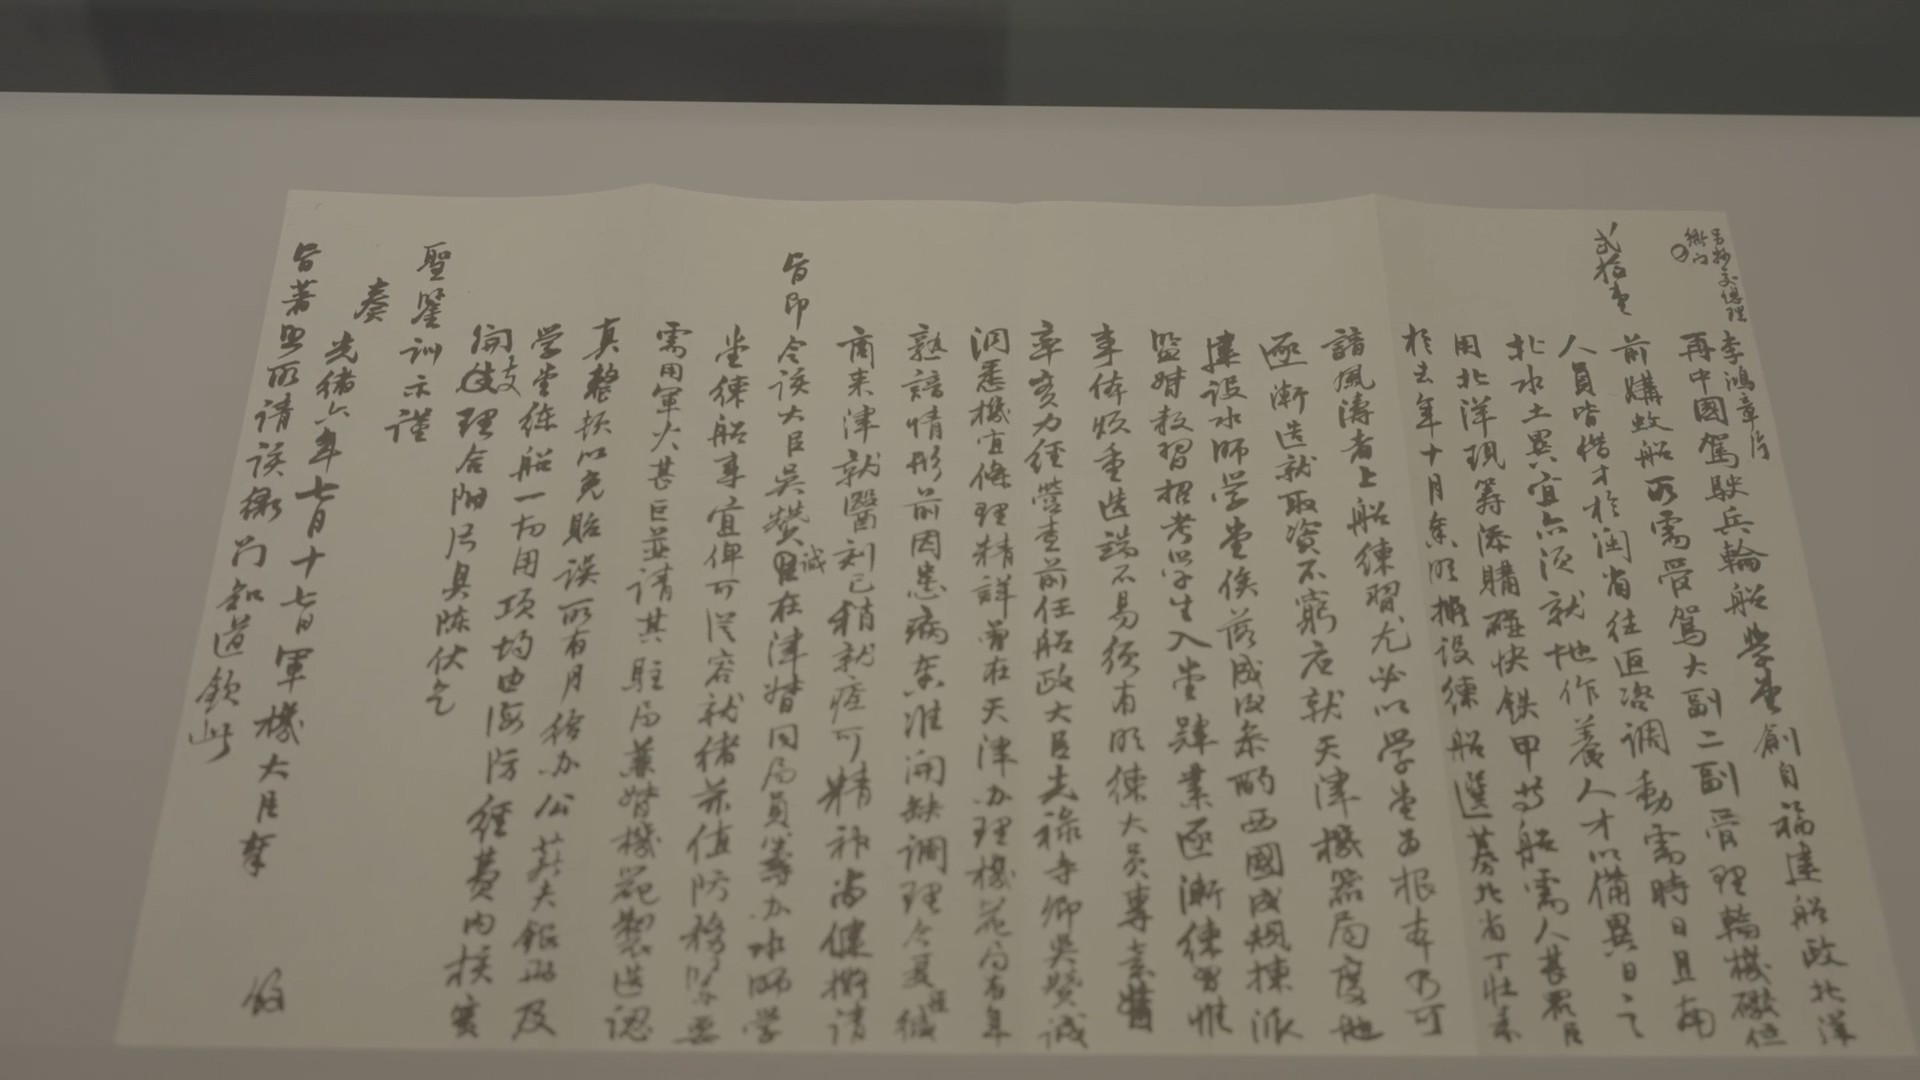 另抄交總理
衙門
弍拾壹
李鴻章片
再中國駕駛兵輪船學堂創自福建船政北洋
前購蚊船所需管駕大副二副管理輪機礮位
人員皆借才於閩省往返咨調動需時日且南
北水土異宜亦須就地作養人才以備異日之
用北洋現籌添購碰快鐵甲等船需人甚眾臣
於去年十月奏明擬設練船選募北省丁壯素
諳風濤者上船練習尤必以學堂為根本乃可
逐漸造就取資不窮應就天津機器局度地
建設水師學堂俟落成後參酌西國成規揀派
監督教習招考學生入堂肄業逐漸練習惟
事体頗重造端不易須有明練大員專意督
率實力經營查前任船政大臣光祿寺卿吳贊誠
洞悉機宜條理精詳曾在天津办理機器局有年
熟諳情形前因患病奏准開缺調理今夏經
商來津就醫刻已稍就痊可精神尚健擬請
旨即令該大臣吳贊誠在津督同局員籌办水師學
堂練船事宜俾可從容就緒並值防務緊要
需用軍火甚巨並請其駐局兼督機器製造認
真整頓以免貽誤所有月修办公薪夫銀兩及
学堂练船一切用項均由海防經費內核實
開支理合附片具陳伏乞
聖鑒訓示謹
奏
光緒六年七月十七日軍機大臣奉
旨著照所請該衙門知道欽此